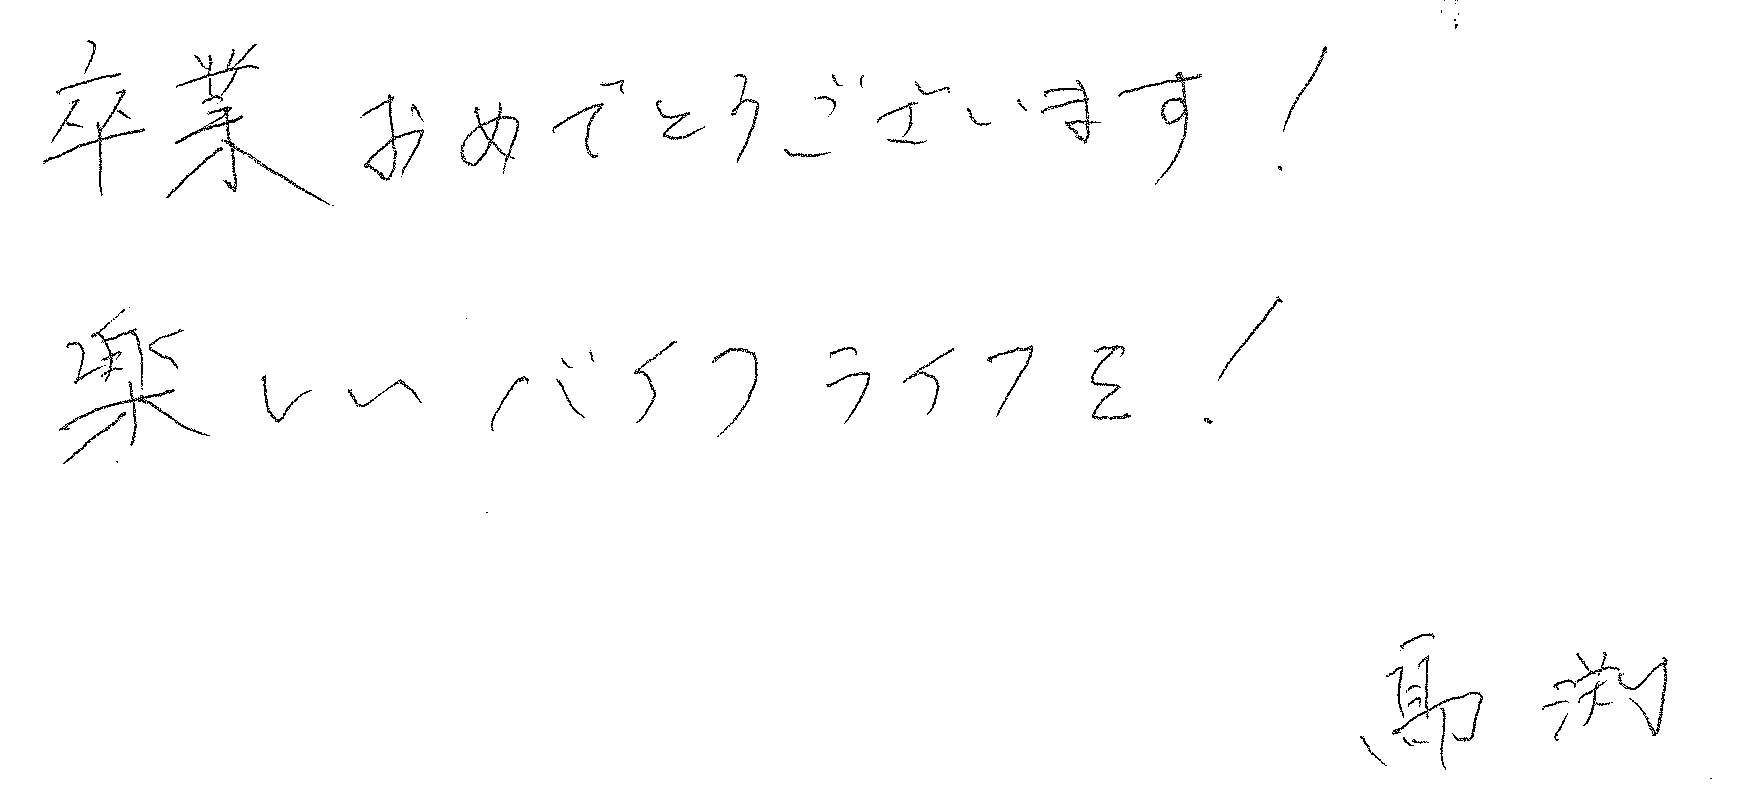 卒業おめでとうございます！
楽しいバイクライフを！
髙渕